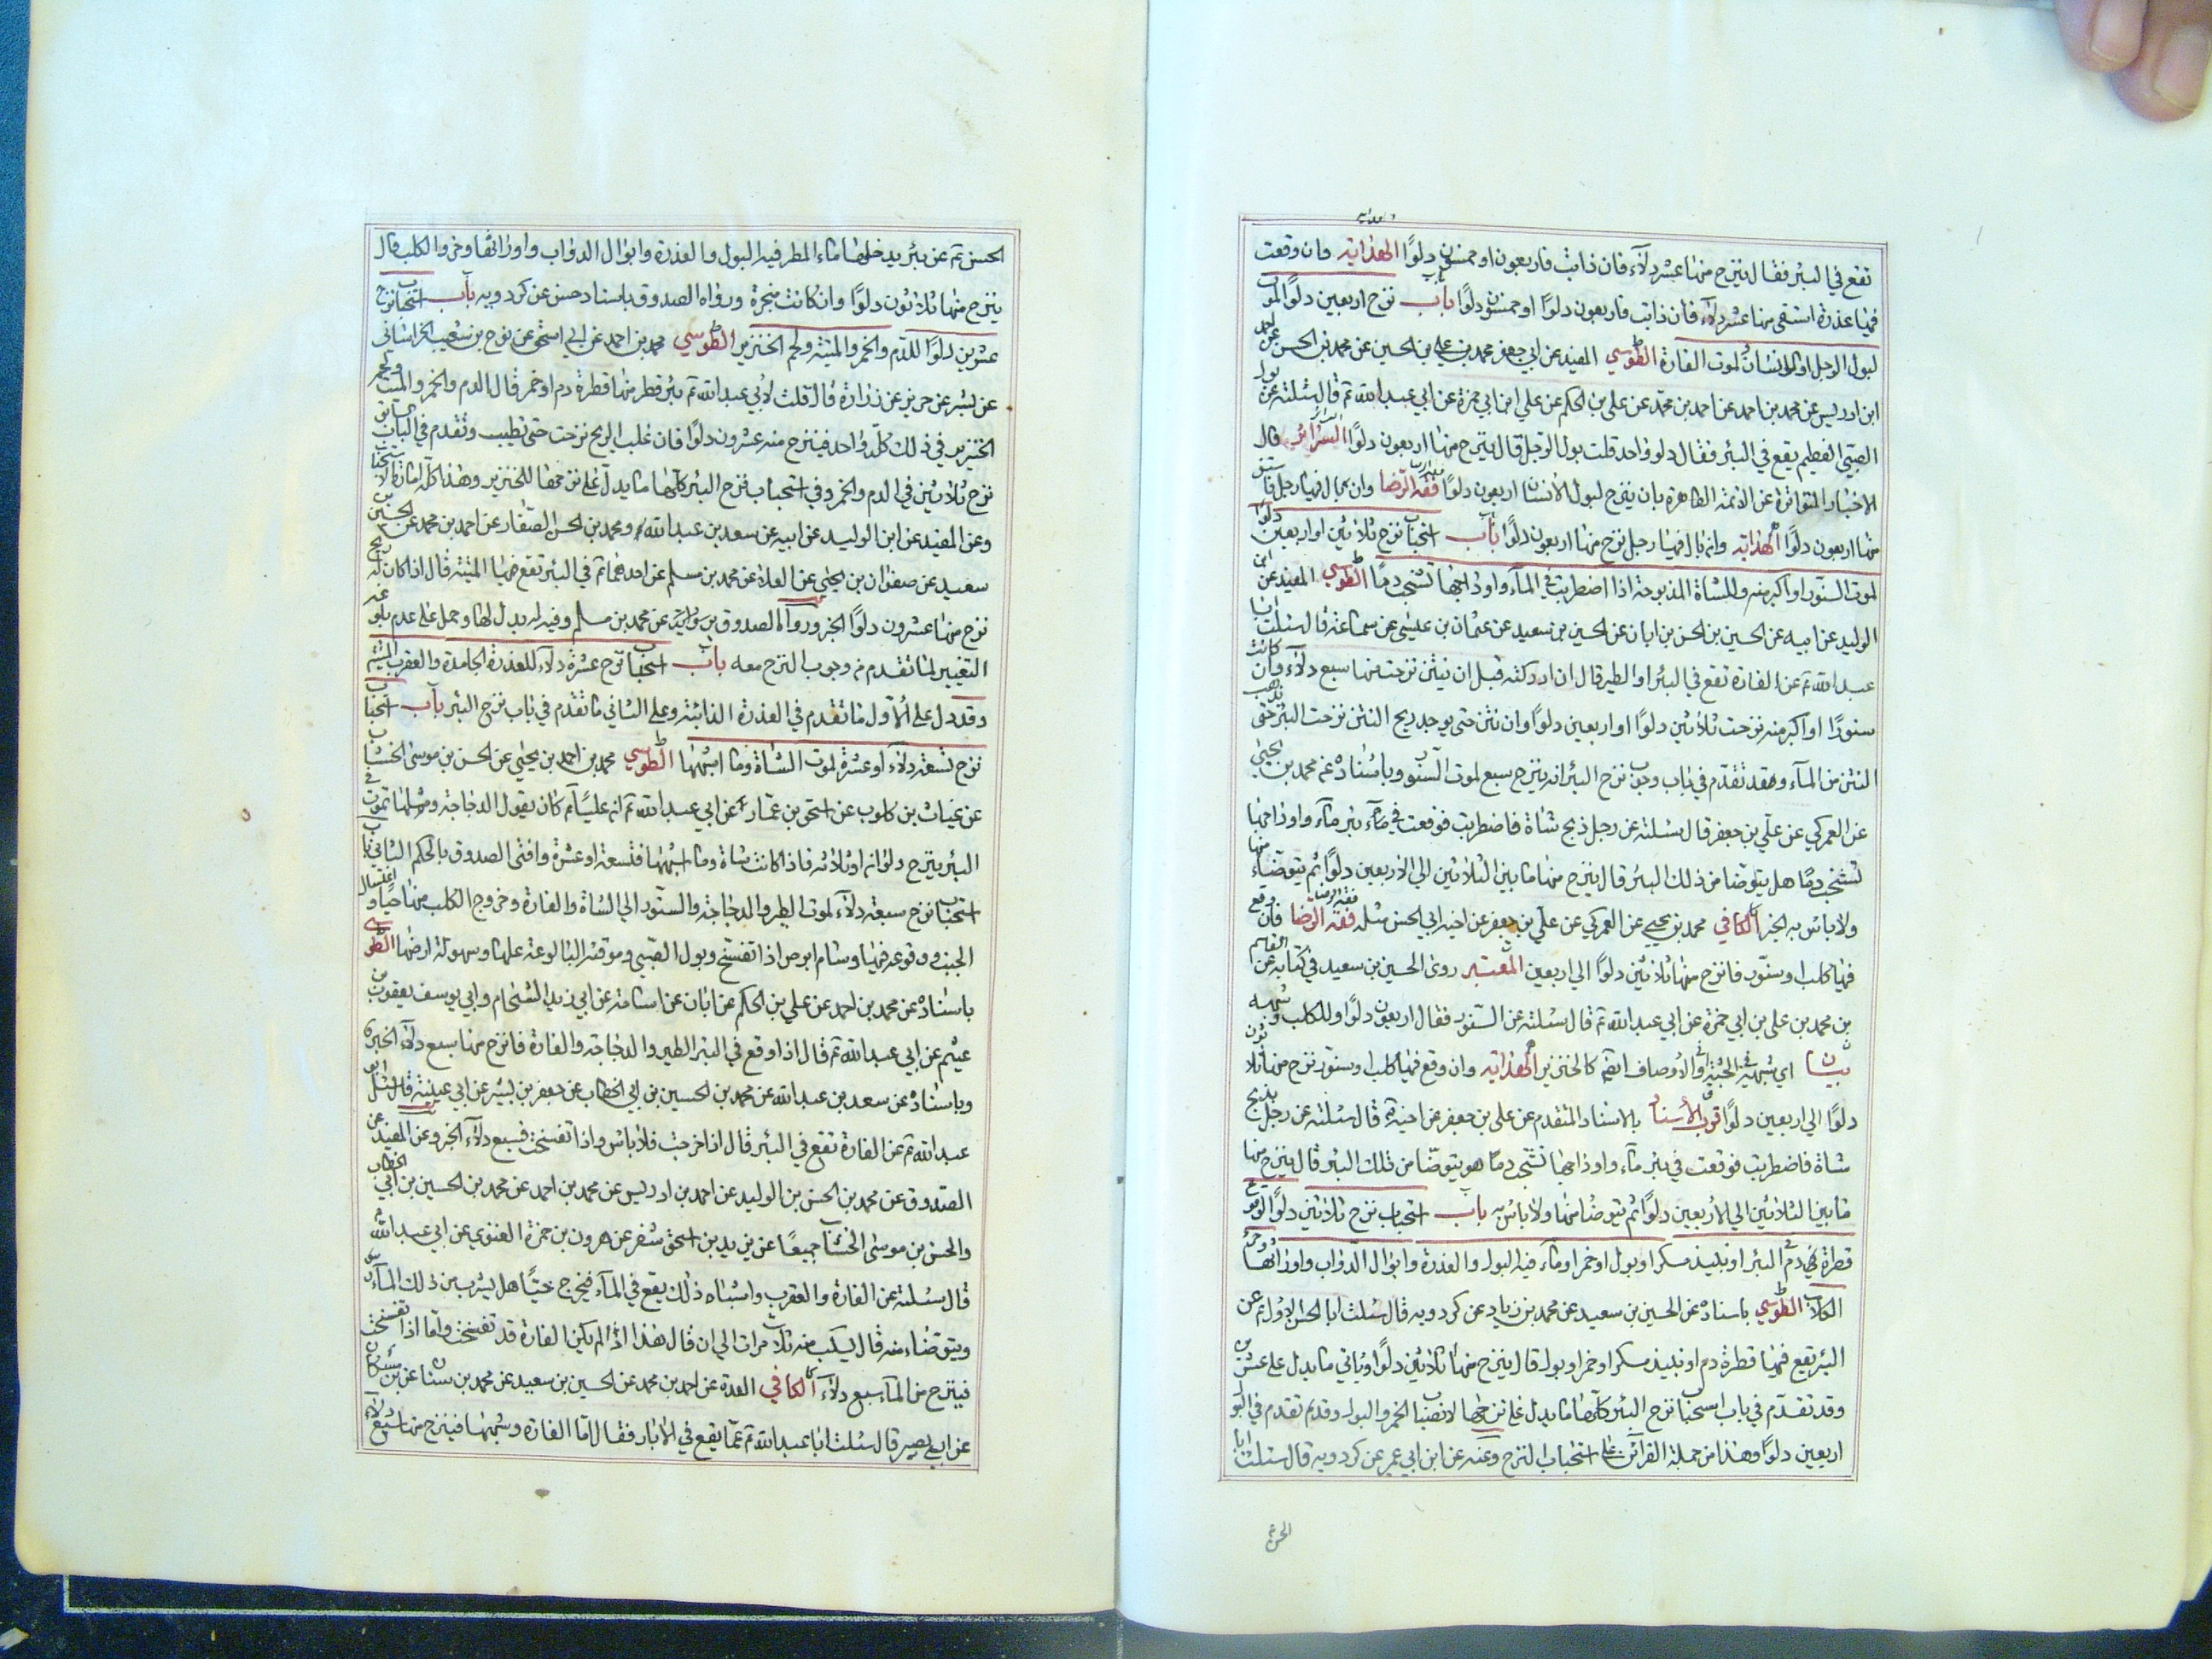 تقع في البئر فقال ينزح منها عشر دلاء فان ذابت فاربعون او خمسون دلوًا الهداية وان وقعت
فيها عذرة استقى منها عشر دلاء فان ذابت فاربعون دلوًا او خمسون دلوًا باب نزح اربعين دلوًا
لبول الرجل او الانسان لموت الفارة الطوسي المفيد عن ابي جعفر محمد بن علي بن الحسين عن محمد بن الحسن عن احمد
ابن ادريس عن محمد بن احمد عن احمد بن محمد عن علي بن الحكم عن علي ابن ابي حمزة عن ابي عبد الله ع قال سئلته عن بول
الصبي الفطيم يقع في البئر فقال دلو واحد قلت بول الرجل قال ينزح منها اربعون دلوًا السرائر قال
الاخبار المتواترة عن الائمة الطاهرة بان ينزح لبول الانسان اربعون دلوًا فقه الرضا وان بال فيها رجل فاستق
منها اربعون دلوًا الهداية وان بال فيها رجل نزح منها اربعون دلوًا باب استحباب نزح ثلاثين او اربعين دلوًا
لموت السنور او اكبر منه وللشاة المذبوحة اذا اضطربت في الماء واوداجها تشخب دمًا الطوسي المفيد عن ابن
الوليد عن ابيه عن الحسين بن الحسن بن ابان عن الحسين بن سعيد عن عثمان بن عيسى عن سماعة قال سئلت ابا
عبد الله ع عن الفارة تقع في البئر او الطير قال ان ادركته قبل ان ينتن نزحت منها سبع دلاء وان كانت
سنورًا او اكبر منه نزحت ثلاثين دلوًا او اربعين دلوًا وان نتن حتى يوجد ريح النتن نزحت البئر حتى يذهب
النتن من الماء وقد تقدم في باب وجوب نزح البئر انه ينزح سبع لموت السنور وباسناده عن محمد بن يحيى
عن العمركي عن علي بن جعفر قال سئلته عن رجل ذبح شاة فاضطربت فوقعت في ماء بئر ماء واوداجها
تشخب دمًا هل يتوضا من ذلك البئر قال ينزح منها ما بين الثلاثين الى الاربعين دلوًا ثم يتوضاء منها
ولا باس به الخبر الكافي محمد بن يحيى عن العمركي عن علي بن جعفر عن اخيه ابي الحسن مثله فقه الرضا فان وقع
فيها كلب او سنور فانزح منها ثلاثين دلوًا الى اربعين المعتبر روى الحسين بن سعيد في كتابه عن القاسم
بن محمد بن علي بن ابي حمزة عن ابي عبد الله ع قال سئلته عن السنور فقال اربعون دلوًا وللكلب وشبهه
بيان اي شبهه في الجثة والاوصاف ايضًا كالخنزير الهداية وان وقع فيها كلب او سنور نزح منها ثلاثون
دلوًا الى اربعين دلوًا قرب الأسناد بالاسناد المتقدم عن علي بن جعفر عن اخيه ع قال سئلته عن رجل يذبح
شاة فاضطربت فوقعت في بئر ماء واوداجها تشخب دمًا هو يتوضا من تلك البئر قال ينزح منها
ما بين الثلاثين الى الاربعين دلوًا ثم يتوضا منها ولا باس به باب استحباب نزح ثلاثين دلوًا لوقوع
قطرة دم في البئر او نبيذ مسكر او بول او خمر او ماء فيه البول والعذرة وابوال الدواب واوراثها وخرؤ
الكلاب الطوسي باسناده عن الحسين بن سعيد عن محمد بن زياد عن كردويه قال سئلت ابا الحسن الاول ع عن
البئر يقع فيها قطرة دم او نبيذ مسكر او خمر او بول قال ينزح منها ثلاثين دلوًا وياتي ما يدل على عشرين
وقد تقدم في باب استحباب نزح البئر كلها ما يدل على نزحها لانصباب الخمر والبول وقد تقدم في البول
اربعين دلوًا وهذا من جملة القرائن على استحباب النزح وعنه عن ابن ابي عمير عن كردويه قال سئلت ابا
الحسن ع
الحسن ع عن بئر يدخلها ماء المطر فيه البول والعذرة وابوال الدواب واوراثها وخرو الكلاب قال
ينزح منها ثلاثون دلوًا وان كانت مبخرة ورواه الصدوق باسناد حسن عن كردويه باب استحباب نزح
عشرين دلوًا للدم والخمر والميتة ولحم الخنزير الطوسي محمد بن احمد عن ابي اسحق عن نوح بن شعيب الخراساني
عن بشير عن حريز عن زرارة قال قلت لأبي عبد الله ع بئر قطر منها قطرة دم او خمر قال الدم والخمر والميت ولحم
الخنزير في ذلك كله واحد فينزح منه عشرون دلوًا فان غلب الريح نزحت حتى تطيب وتقدم في الباب السابق
نزح ثلاثين في الدم والخمر وفي استحباب نزح البئر كلها ما يدل على نزحها للخنزير وهذا كله امارة الاستحباب
وعن المفيد عن ابن الوليد عن ابيه عن سعد بن عبد الله ومحمد بن الحسن الصفار عن احمد بن محمد عن الحسين بن
سعيد عن صفوان بن يحيى عن العلاء عن محمد بن مسلم عن احدهما ع في البئر تقع فيها الميتة قال اذا كان له ريح
نزح منها عشرون دلوًا الخبر ورواه الصدوق عن محمد بن مسلم وحمل على عدم بلوغه
التغيير لما تقدم من وجوب النزح معه باب استحباب نزح عشرة دلاء للعذرة الجامدة والعقرب الميتة
وقد دل على الأول ما تقدم في العذرة الذائبة وعلى الثاني ما تقدم في باب نزح البئر باب استحباب
نزح تسعة دلاء او عشرة لموت الشاة وما اشبهها الطوسي محمد بن احمد بن يحيى عن الحسن بن موسى الخشاب
عن غياث بن كلوب عن اسحق بن عمار عن ابي عبد الله ع ان عليًا ع كان يقول الدجاجة ومثلها تموت في
البئر ينزح دلوان او ثلاثة فاذا كانت شاة وما اشبهها فتسعة او عشرة وافتى الصدوق بالحكم الثاني باب
استحباب نزح سبعة دلاء لموت الطير والدجاجة والسنور الى الشاة والفارة وخروج الكلب منها حيًا واغتسال
الجنب ووقوعه فيها وسام ابرص اذا تفسخ وبول الصبي وموقف البالوعة عليها وسهولة ارضها الطوسي
باسناده عن محمد بن احمد عن علي بن الحكم عن ابان عن اسامة عن ابي زيد الشحام وابي يوسف يعقوب بن
عيثم عن ابي عبد الله ع قال اذا وقع في البئر الطير والدجاجة والفارة فانزح منها سبع دلاء الخبر
وباسناده عن سعد بن عبد الله عن محمد بن الحسين بن ابي الخطاب عن جعفر بن بشير عن ابي عيينة قال سئل ابو
عبد الله ع عن الفارة تقع في البئر قال اذا خرجت فلا باس واذا تفسخت فسبع دلاء الخبر وعن المفيد عن
الصدوق عن محمد بن الحسن بن الوليد عن احمد بن ادريس عن محمد بن احمد عن محمد بن الحسين بن ابي الخطاب
والحسن بن موسى الخشاب جميعًا عن يزيد بن اسحق شغر عن هرون بن حمزة الغنوي عن ابي عبد الله ع
قال سئلته عن الفارة والعقرب واشباه ذلك يقع في الماء فيخرج حيًا هل يشرب من ذلك الماء
ويتوضاء منه قال يسكب منه ثلاث مرات الى ان قال هذا اذا لم يكن الفارة قد تفسخت واما اذا تفسخت
فينزح من الماء سبع دلاء الكافي العدة عن احمد بن محمد عن الحسين بن سعيد عن محمد بن سنان عن ابن مسكان
عن ابي بصير قال سئلت ابا عبد الله ع عما يقع في الابار فقال اما الفارة وشبهها فينزح منها سبع دلاء